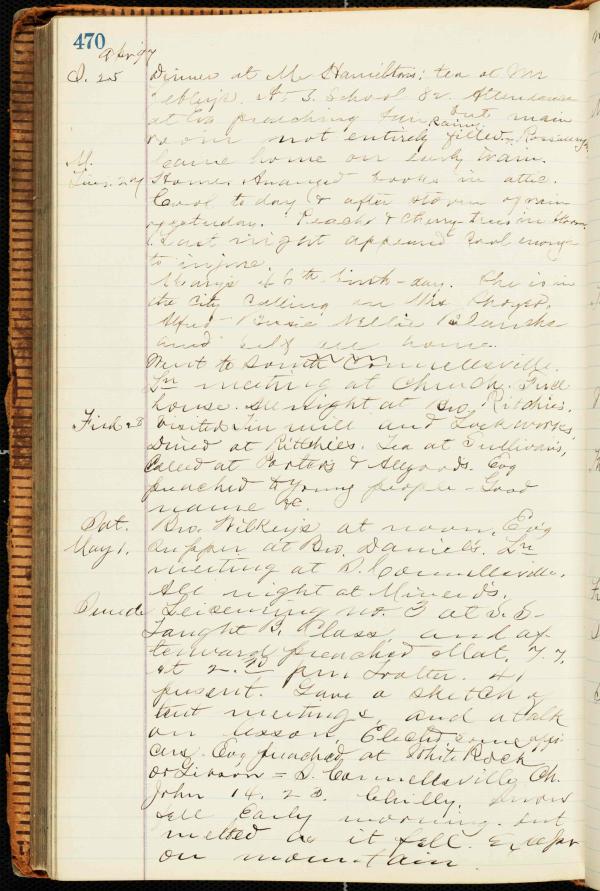 470
Apr '97
S. 25 Dinner at Mr Hamiltons; tea at Mr
At S. School &c. Attendance
at Eve preaching but main
room not entirely filled. Rainy.
M. came home on early train.
Tues. 27 Home. Arranged books in attic.
Cool to day & after storm of rain
yesterday. Peach & Cherry trees in bloom
Last night appeared cool enough
to injure.
Mary's 26th birth-day. She is in
the city calling on Mrs
Alfred Susie Nellie Blanche
and self at home.
Went to South Connellsville.
Ln meeting at Church. Full
house. All night at Bro. Ritchie's.
Frid 28 Visited Tin mill and Lock works,
Dined at Ritchies. Tea at Sullivan's,
Called at Porters & Allgoods. Evg
preached to Young people - Good
name &c.
Sat. Bro. Wilkeys at noon, Ev'g
May 1. supper at Bro. Daniel's. Ln
meeting at S. Connellsville.
All night at Minerd's.
Sunede Leisenring no. 3 at S. S-
Taught B. Class, and af-
terward preached Mat. 7.7.
At 2.30 pm Trotter. 41
present. Gave a sketch of
tent meetings, and a talk
on lesson, Elected some offi
cers. Evg preached at White Rock
or Gibson = S. Connellsville Ch.
John 14. 23. Chilly. Snow
fell Early morning. but
melted as it fell. Except
on mountain.